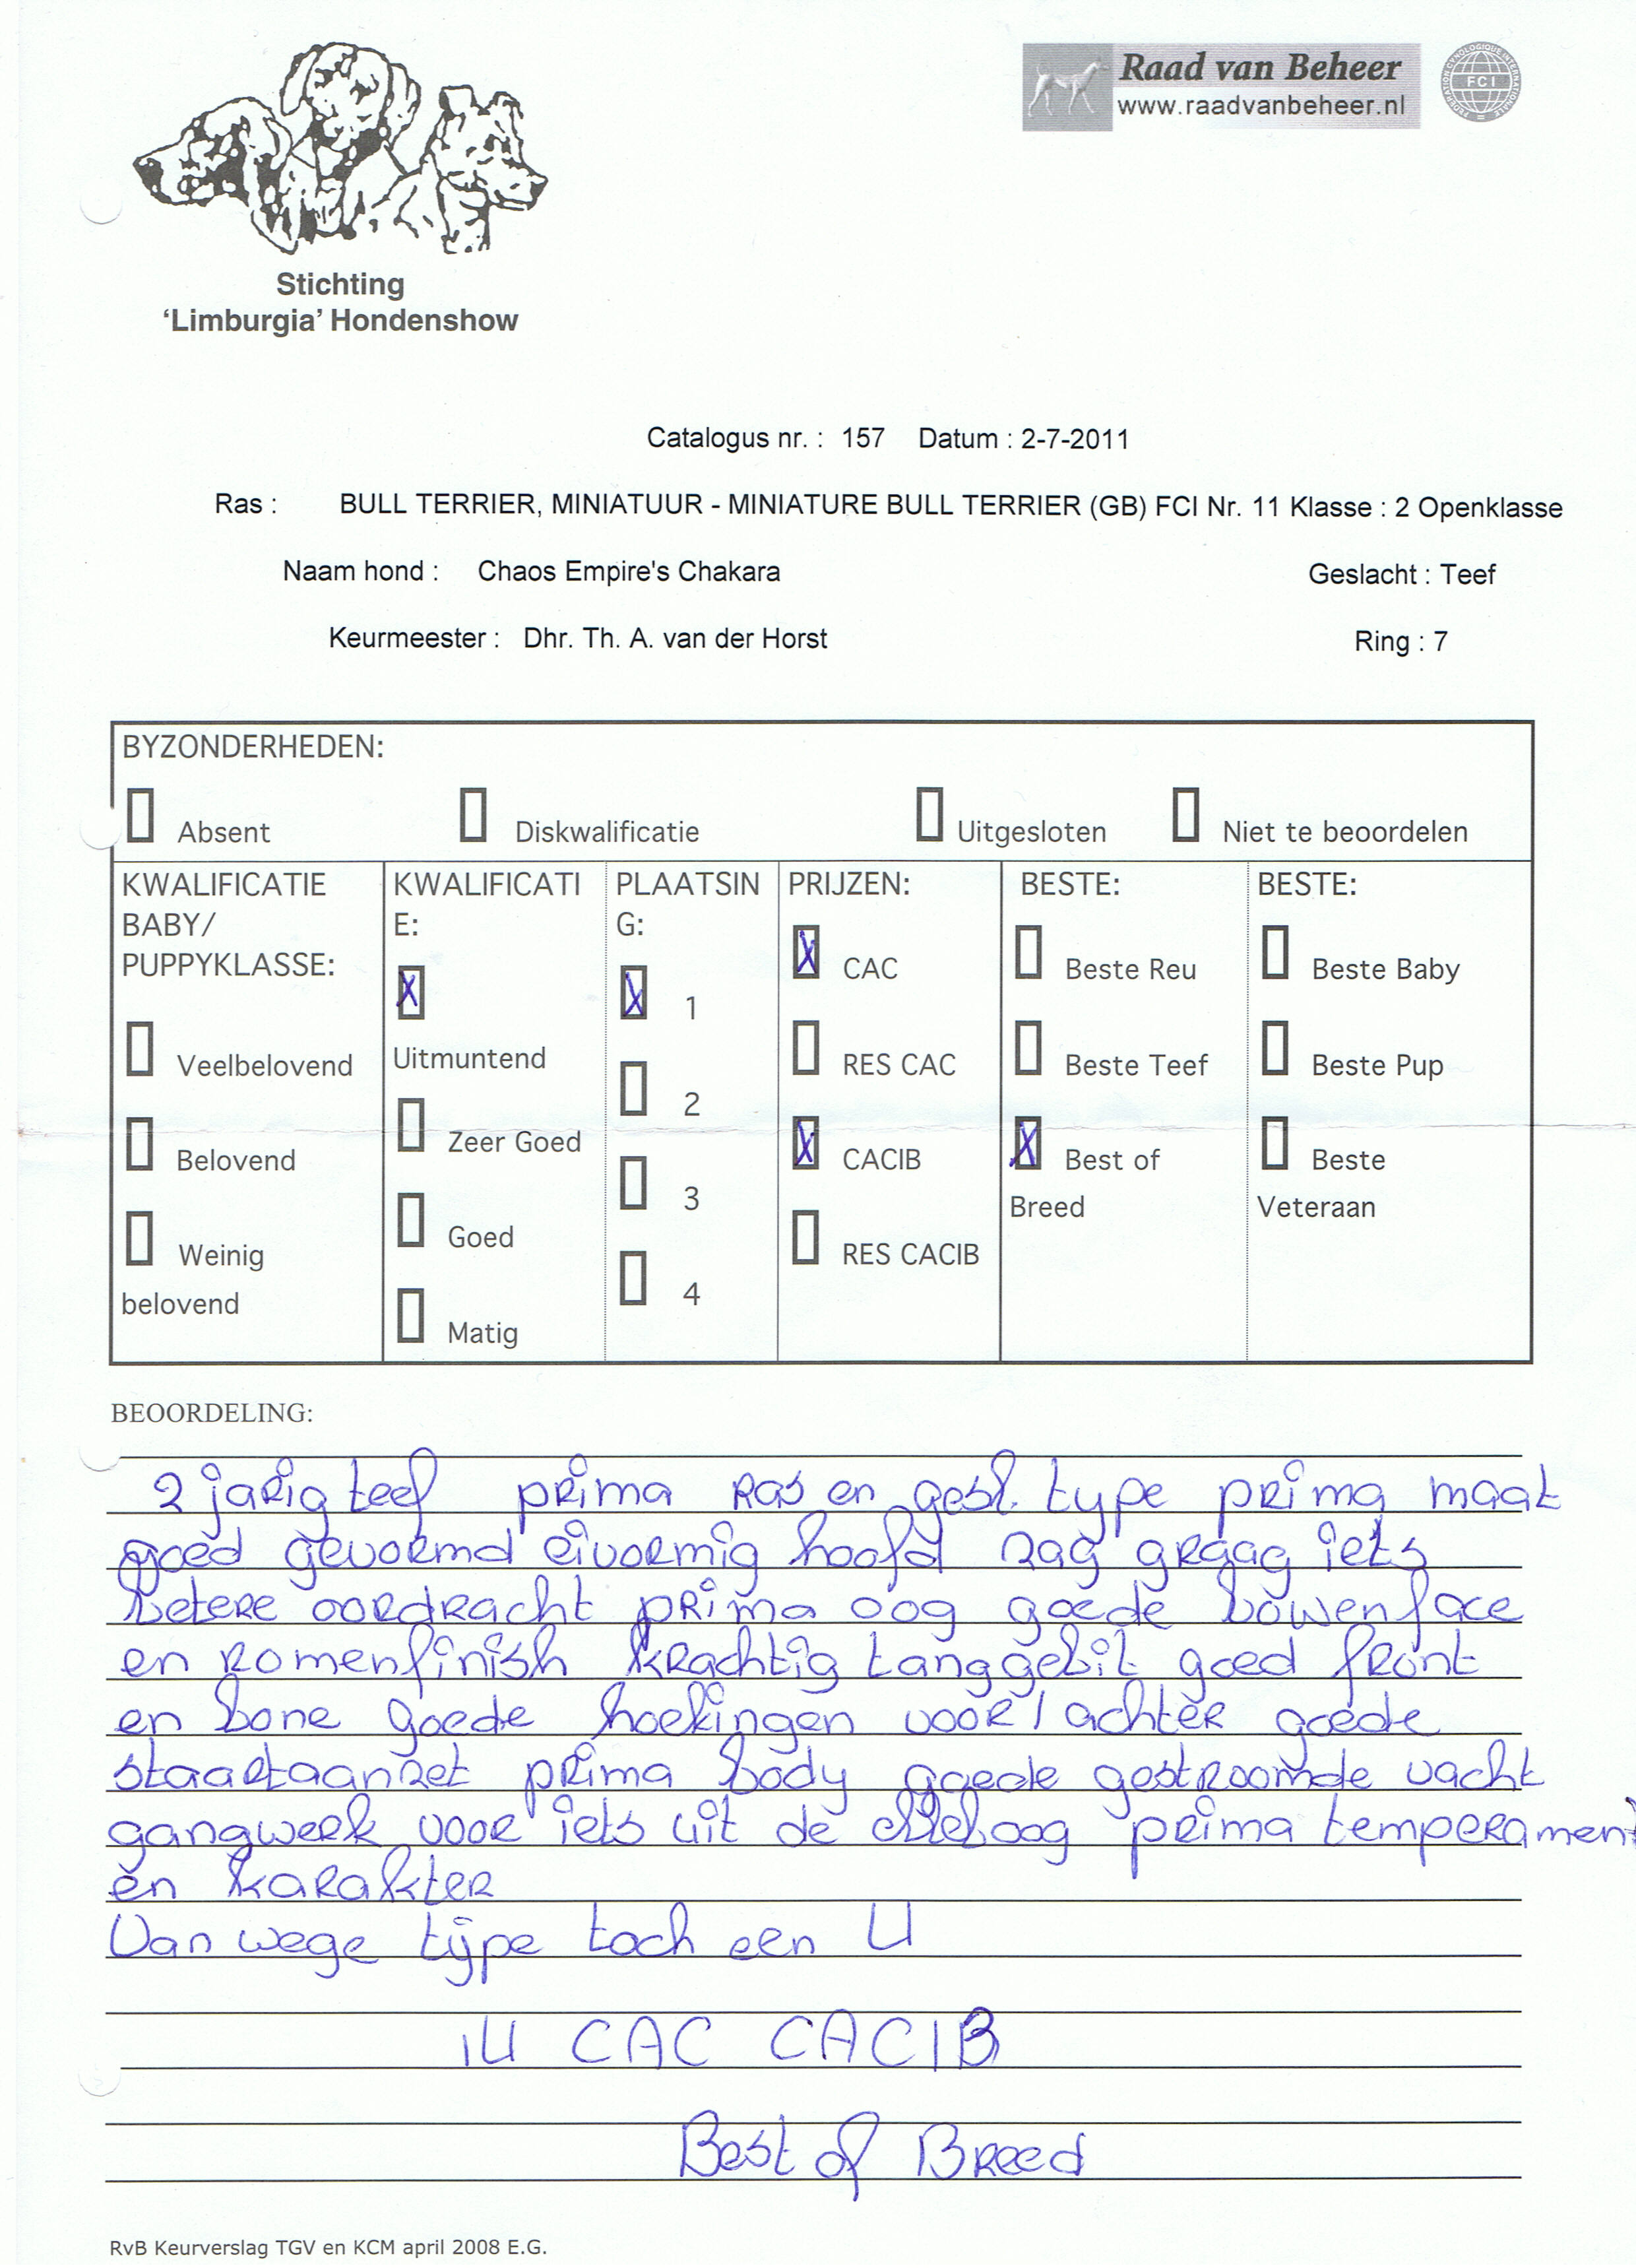 Raad van Beheer
www.raadvanbeheer.nl
FEDERATION CYNOLOGIQUE INTERNATIONALE
FCI
Stichting
‘Limburgia’ Hondenshow
Catalogus nr. : 157 Datum : 2-7-2011
Ras : BULL TERRIER, MINIATUUR - MINIATURE BULL TERRIER (GB) FCI Nr. 11 Klasse : 2 Openklasse
Naam hond : Chaos Empire's Chakara Geslacht : Teef
Keurmeester : Dhr. Th. A. van der Horst Ring : 7
BYZONDERHEDEN:
Absent Diskwalificatie Uitgesloten Niet te beoordelen
KWALIFICATIE
BABY/
PUPPYKLASSE:
Veelbelovend
Belovend
Weinig
belovend
KWALIFICATI
E:
X
Uitmuntend
Zeer Goed
Goed
Matig
PLAATSIN
G:
X 1
2
3
4
PRIJZEN:
X CAC
RES CAC
X CACIB
RES CACIB
BESTE:
Beste Reu
Beste Teef
X Best of
Breed
BESTE:
Beste Baby
Beste Pup
Beste
Veteraan
BEOORDELING:
2 jarig teef prima ras en gesl. type prima maat
goed gevormd eivormig hoofd zag graag iets
betere oordracht prima oog goede bowenface
en romenfinish krachtig tanggebit goed front
en bone goede hoekingen voor/achter goede
staartaanzet prima body goede gestroomde vacht
gangwerk voor iets uit de elleboog prima temperament
en karakter
Van wege type toch een U
1U CAC CACIB
Best of Breed
RvB Keurverslag TGV en KCM april 2008 E.G.